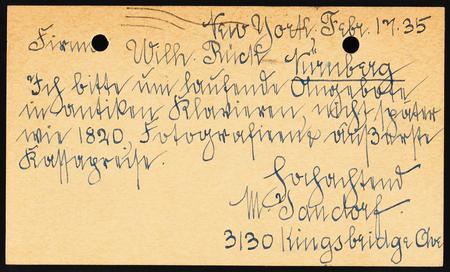 New York. Febr. 17. 35
Firma Wilh. Rück Nürnberg
Ich bitte um laufende Angebote
in antiken Klavieren, nicht später
wie 1820. Fotografieen & äußerste
Kassapreise.
Hochachtend
M. Jandorf.
3130 Kingsbridge Ave